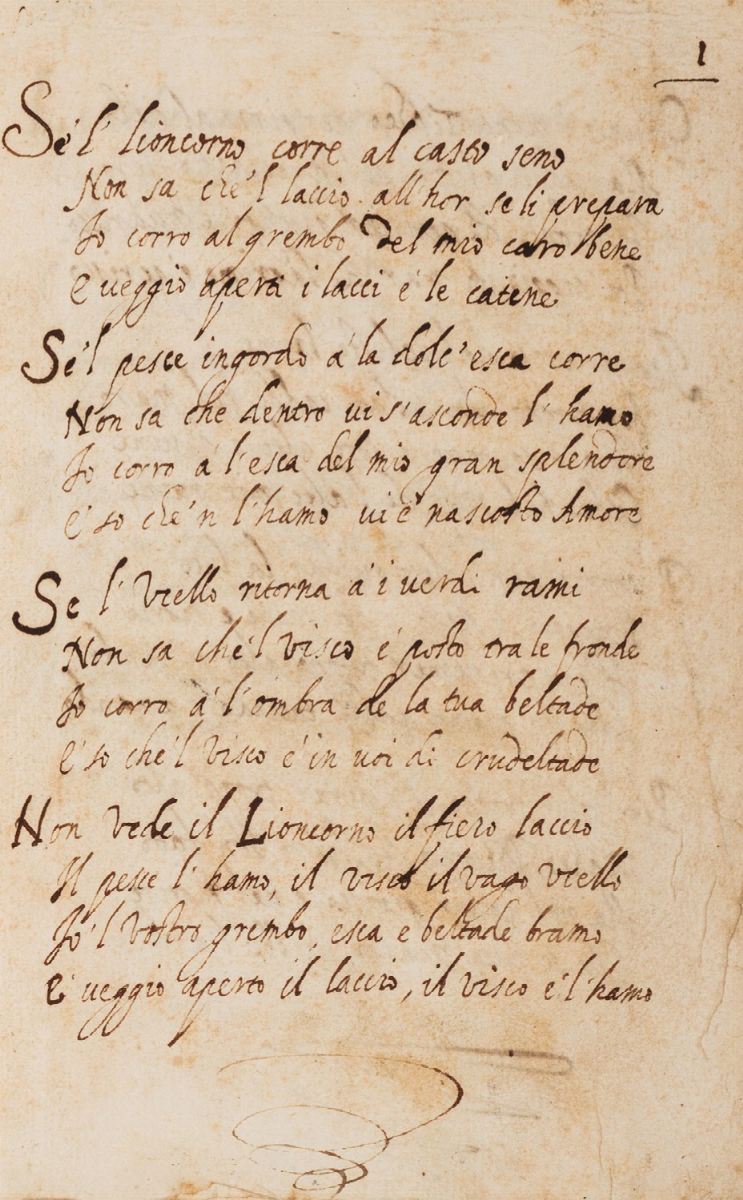 1
Se'l lioncorno corre al casto seno
Non sa che'l laccio all'hor se li prepara
Io corro al grembo del mio caro bene
E veggio aperti i lacci é le catene
Se'l pesce ingordo á la dolc'esca corre
Non sa che dentro vi s'asconde l'hamo
Io corro á l'esca del mio gran splendore
E so che'n l'hamo vi é nascosto Amore
Se l'Vcello ritorna á i verdi rami
Non sa che'l visco é posto tra le fronde
Io corro á l'ombra de la tua beltade
E so che'l visco é in voi di crudeltade
Non vede il Lioncorno il fiero laccio
Il pesce l'hamo, il visco il vago vcello
Io'l vostro grembo, esca e beltade bramo
E veggio aperto il laccio, il visco e l'hamo